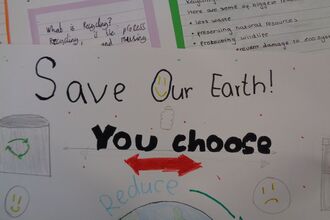 What is Recycling?
Recycling, is the proGress
and reusing
here are some of
• less waste
• preserving natural resources
• protecting wildlife
• prevent damage to ecosys
Save Our Earth!
You choose
Reduce